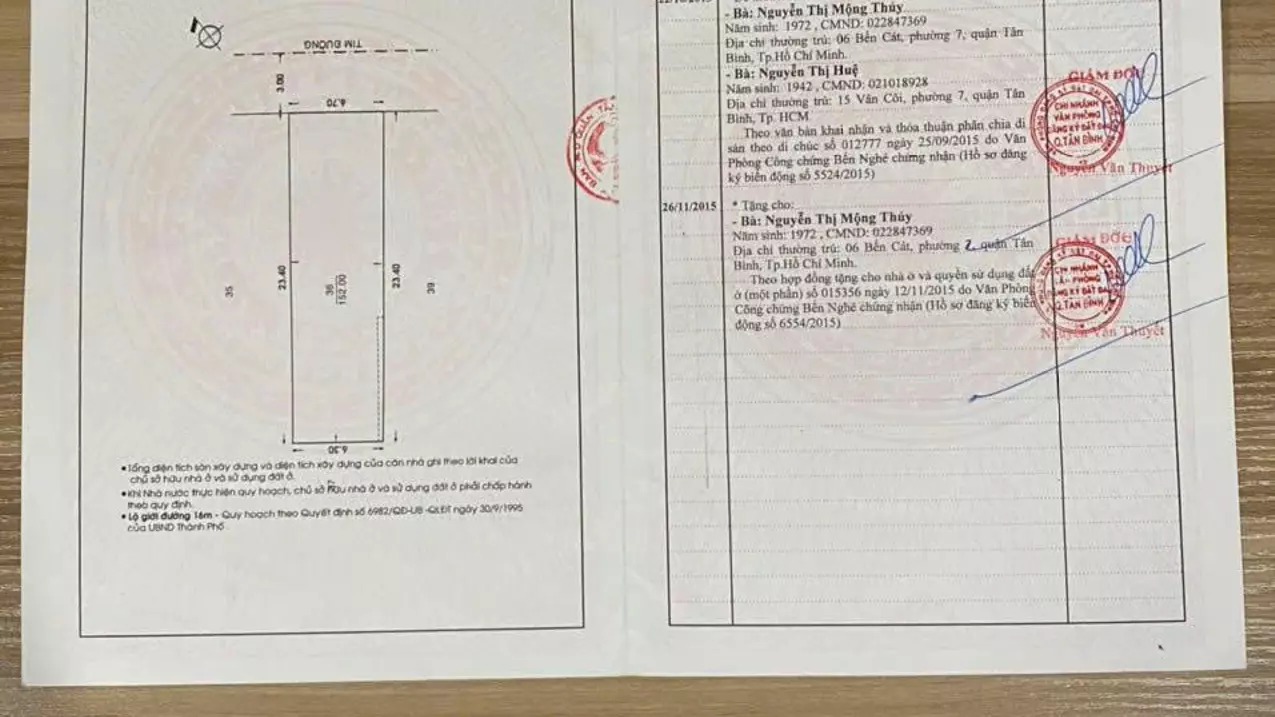 TIM ĐƯỜNG
3.00
6.70
23.40
23.40
35
36
152.00
39
6.30
• Tổng diện tích sàn xây dựng và diện tích xây dựng của căn nhà ghi theo lời khai của
chủ sở hữu nhà ở và sử dụng đất ở.
• Khi Nhà nước thực hiện quy hoạch, chủ sở hữu nhà ở và sử dụng đất ở phải chấp hành
theo quy định.
• Lộ giới đường 16m - Quy hoạch theo Quyết định số 6982/QĐ-UB -QLĐT ngày 30/9/1995
của UBND Thành Phố
- Bà: Nguyễn Thị Mộng Thúy
Năm sinh: 1972 , CMND: 022847369
Địa chỉ thường trú: 06 Bến Cát, phường 7, quận Tân
Bình, Tp.Hồ Chí Minh.
- Bà: Nguyễn Thị Huệ
Năm sinh: 1942 , CMND: 021018928
Địa chỉ thường trú: 15 Văn Côi, phường 7, quận Tân
Bình, Tp. HCM
Theo văn bản khai nhận và thỏa thuận phân chia di
sản theo di chúc số 012777 ngày 25/09/2015 do Văn
Phòng Công chứng Bến Nghé chứng nhận (Hồ sơ đăng
ký biến động số 5524/2015)
GIÁM ĐỐC
CHI NHÁNH
VĂN PHÒNG
ĐĂNG KÝ ĐẤT ĐAI
Q.TÂN BÌNH
Nguyễn Văn Thuyết
26/11/2015
* Tặng cho:
- Bà: Nguyễn Thị Mộng Thúy
Năm sinh: 1972 , CMND: 022847369
Địa chỉ thường trú: 06 Bến Cát, phường 7, quận Tân
Bình, Tp.Hồ Chí Minh.
Theo hợp đồng tặng cho nhà ở và quyền sử dụng đất
ở (một phần) số 015356 ngày 12/11/2015 do Văn Phòng
Công chứng Bến Nghé chứng nhận (Hồ sơ đăng ký biến
động số 6554/2015)
GIÁM ĐỐC
CHI NHÁNH
VĂN PHÒNG
ĐĂNG KÝ ĐẤT ĐAI
Q.TÂN BÌNH
Nguyễn Văn Thuyết